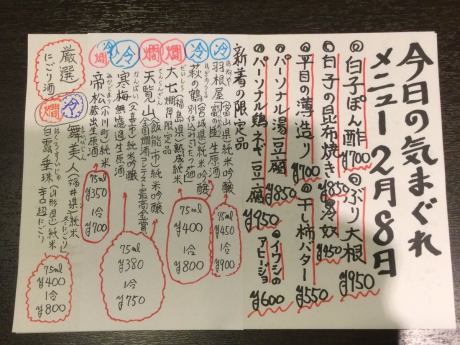 今日の気まぐれ
メニュー2月8日
白子ぽん酢 ¥700
ぶり大根 ¥950
白子の昆布焼き ¥850
冷奴 ¥450
平目の薄造り ¥700
干し柿バター ¥550
パーソナル湯豆腐 ¥850
イワシのアヒージョ ¥600
パーソナル鶏ネギ豆腐 ¥950
新着の限定品
冷
羽根屋(富山県)純米吟醸
75ml ¥450 1合 ¥900
冷
萩の鶴(宮城県)純米吟醸
燗
大七(福島県)熟成純米
燗酒限定品
75ml ¥400 1合 ¥800
燗
天覧山(飯能市)純米吟醸
冷
寒梅(久喜市)純米吟醸
無濾過生原酒
75ml ¥380 1合 ¥750
燗
冷
帝松(小川町)純米
蔵出生原酒
75ml ¥350 1合 ¥700
厳選
にごり酒
冷
舞美人(福井県)純米
燗
白露垂珠(山形県)純米
75ml ¥400 1合 ¥800